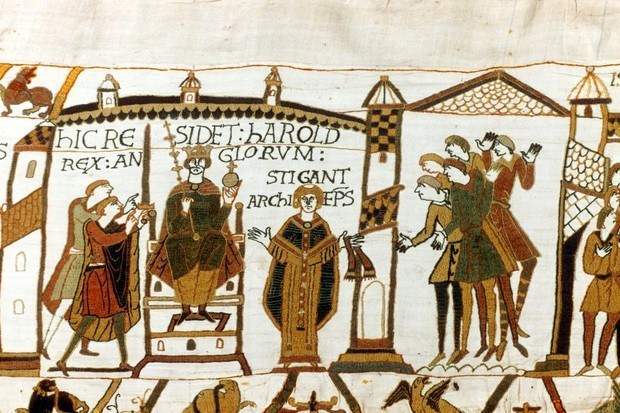 HIC RE SIDET : HAROLD
REX : AN GLORVM :
STIGANT
ARCHI EP̄S